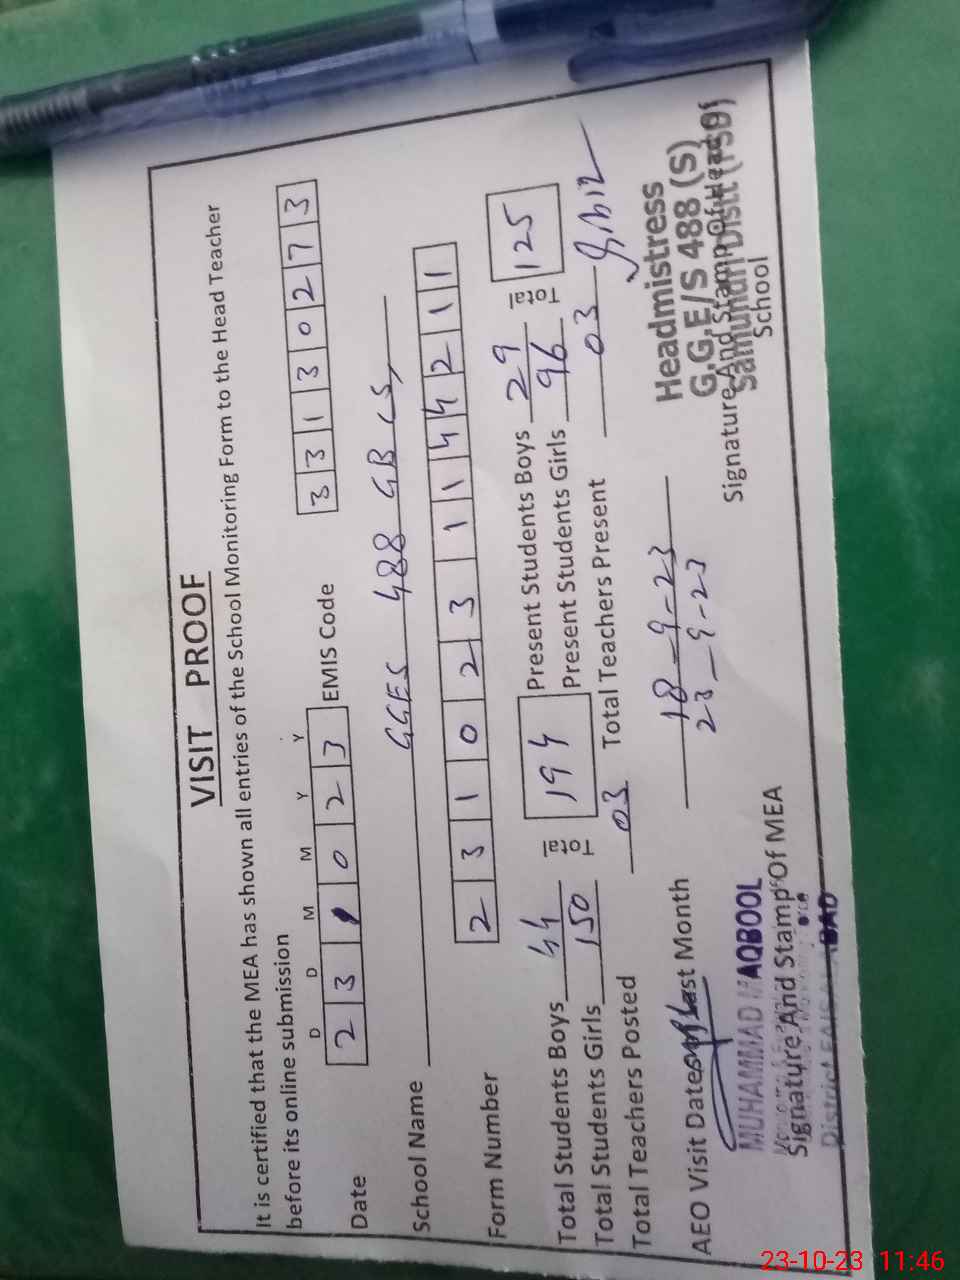 VISIT PROOF
It is certified that the MEA has shown all entries of the School Monitoring Form to the Head Teacher
before its online submission
D D M M Y Y
Date 23 10 23 EMIS Code 33130273
School Name GGES 488 GB (S)
Form Number 2310231144211
Total Students Boys 44 Total 194 Present Students Boys 29 Total 125
Total Students Girls 150 Present Students Girls 96
Total Teachers Posted 03 Total Teachers Present 03
AEO Visit Dates of Last Month 18-9-23
23-9-23
MUHAMMAD MAQBOOL
Signature And Stamp Of MEA
Headmistress
G.G.E/S 488 (S)
Samundri Distt (FSD)
Signature And Stamp Of Head
School
23-10-23 11:46